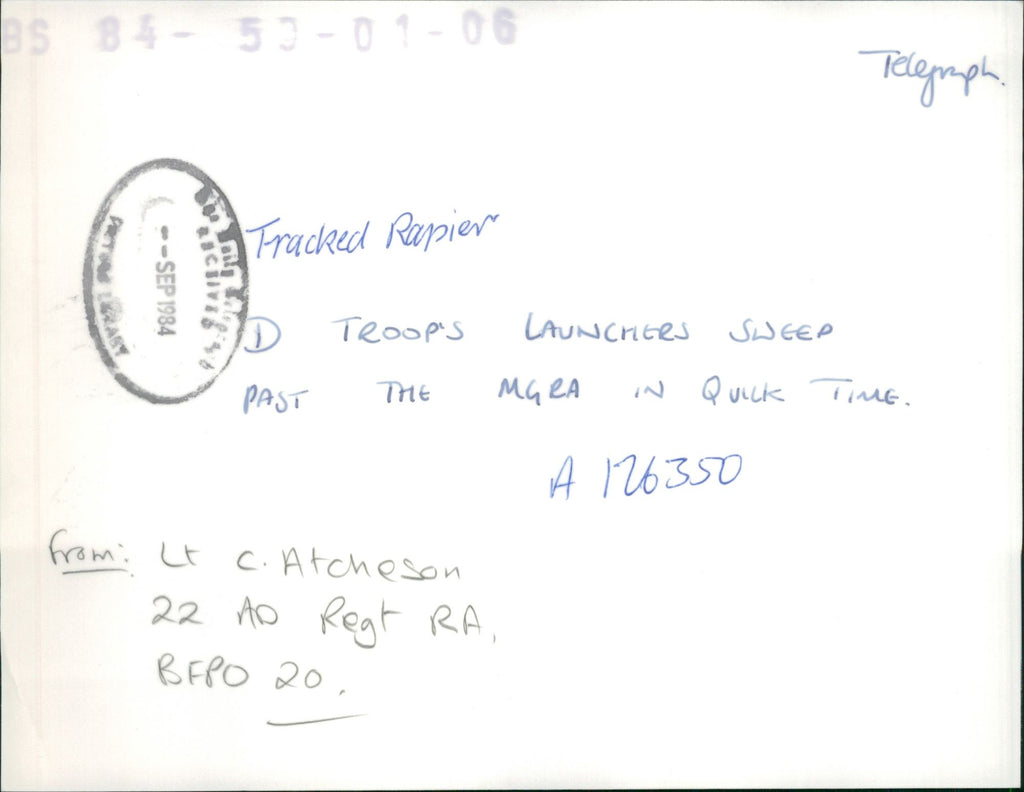 BS 84-53-01-06
Telegraph.
ARCHIVES
--SEP1984
PICTURE LIBRARY
Tracked Rapier
D TROOP'S LAUNCHERS SWEEP
PAST THE MGRA IN QUICK TIME.
A 126350
From: Lt C. Atcheson
22 AD Regt RA,
BFPO 20.